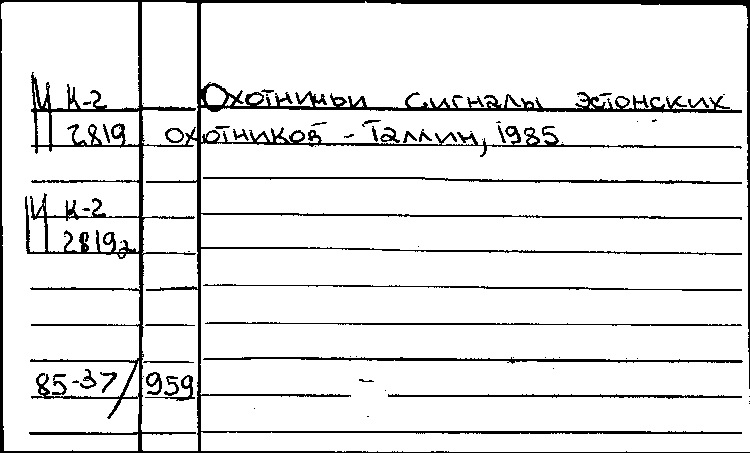 И К-2 Охотничьи сигналы эстонских
2819 охотников - Таллин, 1985.
И К-2
2819а
85-37/959